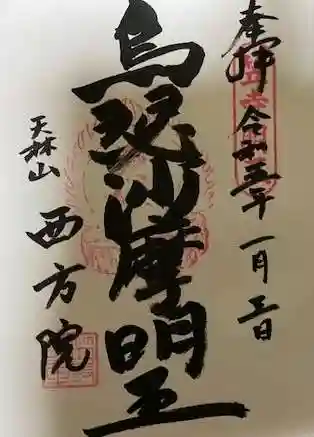 奉拝 令和五年 一月三日
烏瑟沙摩明王
天林山 西方院